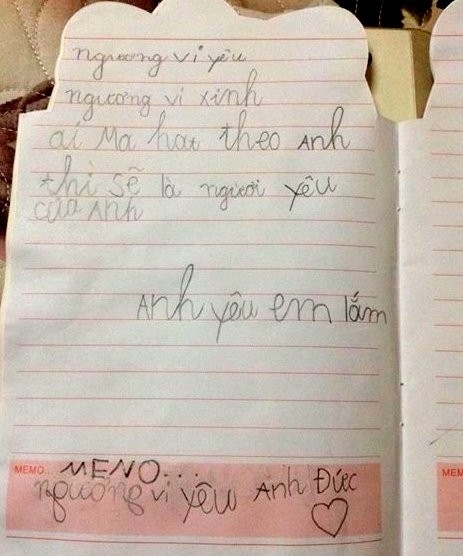 ngương vi yêu
ngương vi xinh
ai Ma hat theo Anh
thì sẽ là người yêu
của Anh
Anh yêu em lắm
MEMO... MENO...
ngương vi yêu Anh Đức
MEM